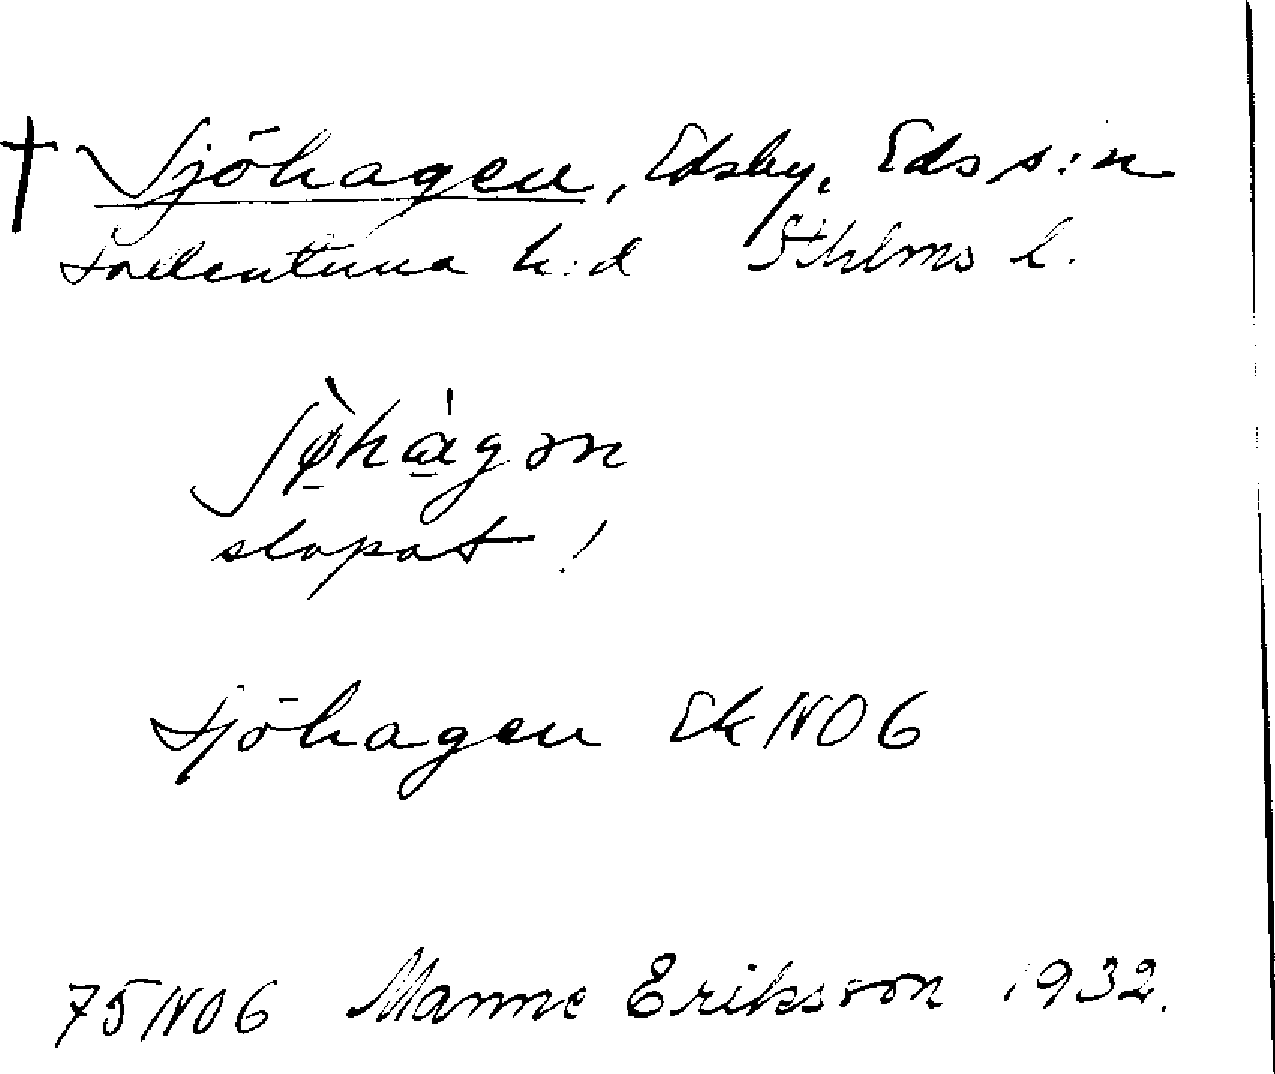 † Sjöhagen, Edsby, Eds s:n
Sollentuna h:d Sthlms l.
ʃø̀hàgən
slopat!
Sjöhagen Ek NO6
75 NO6 Manne Eriksson 1932.